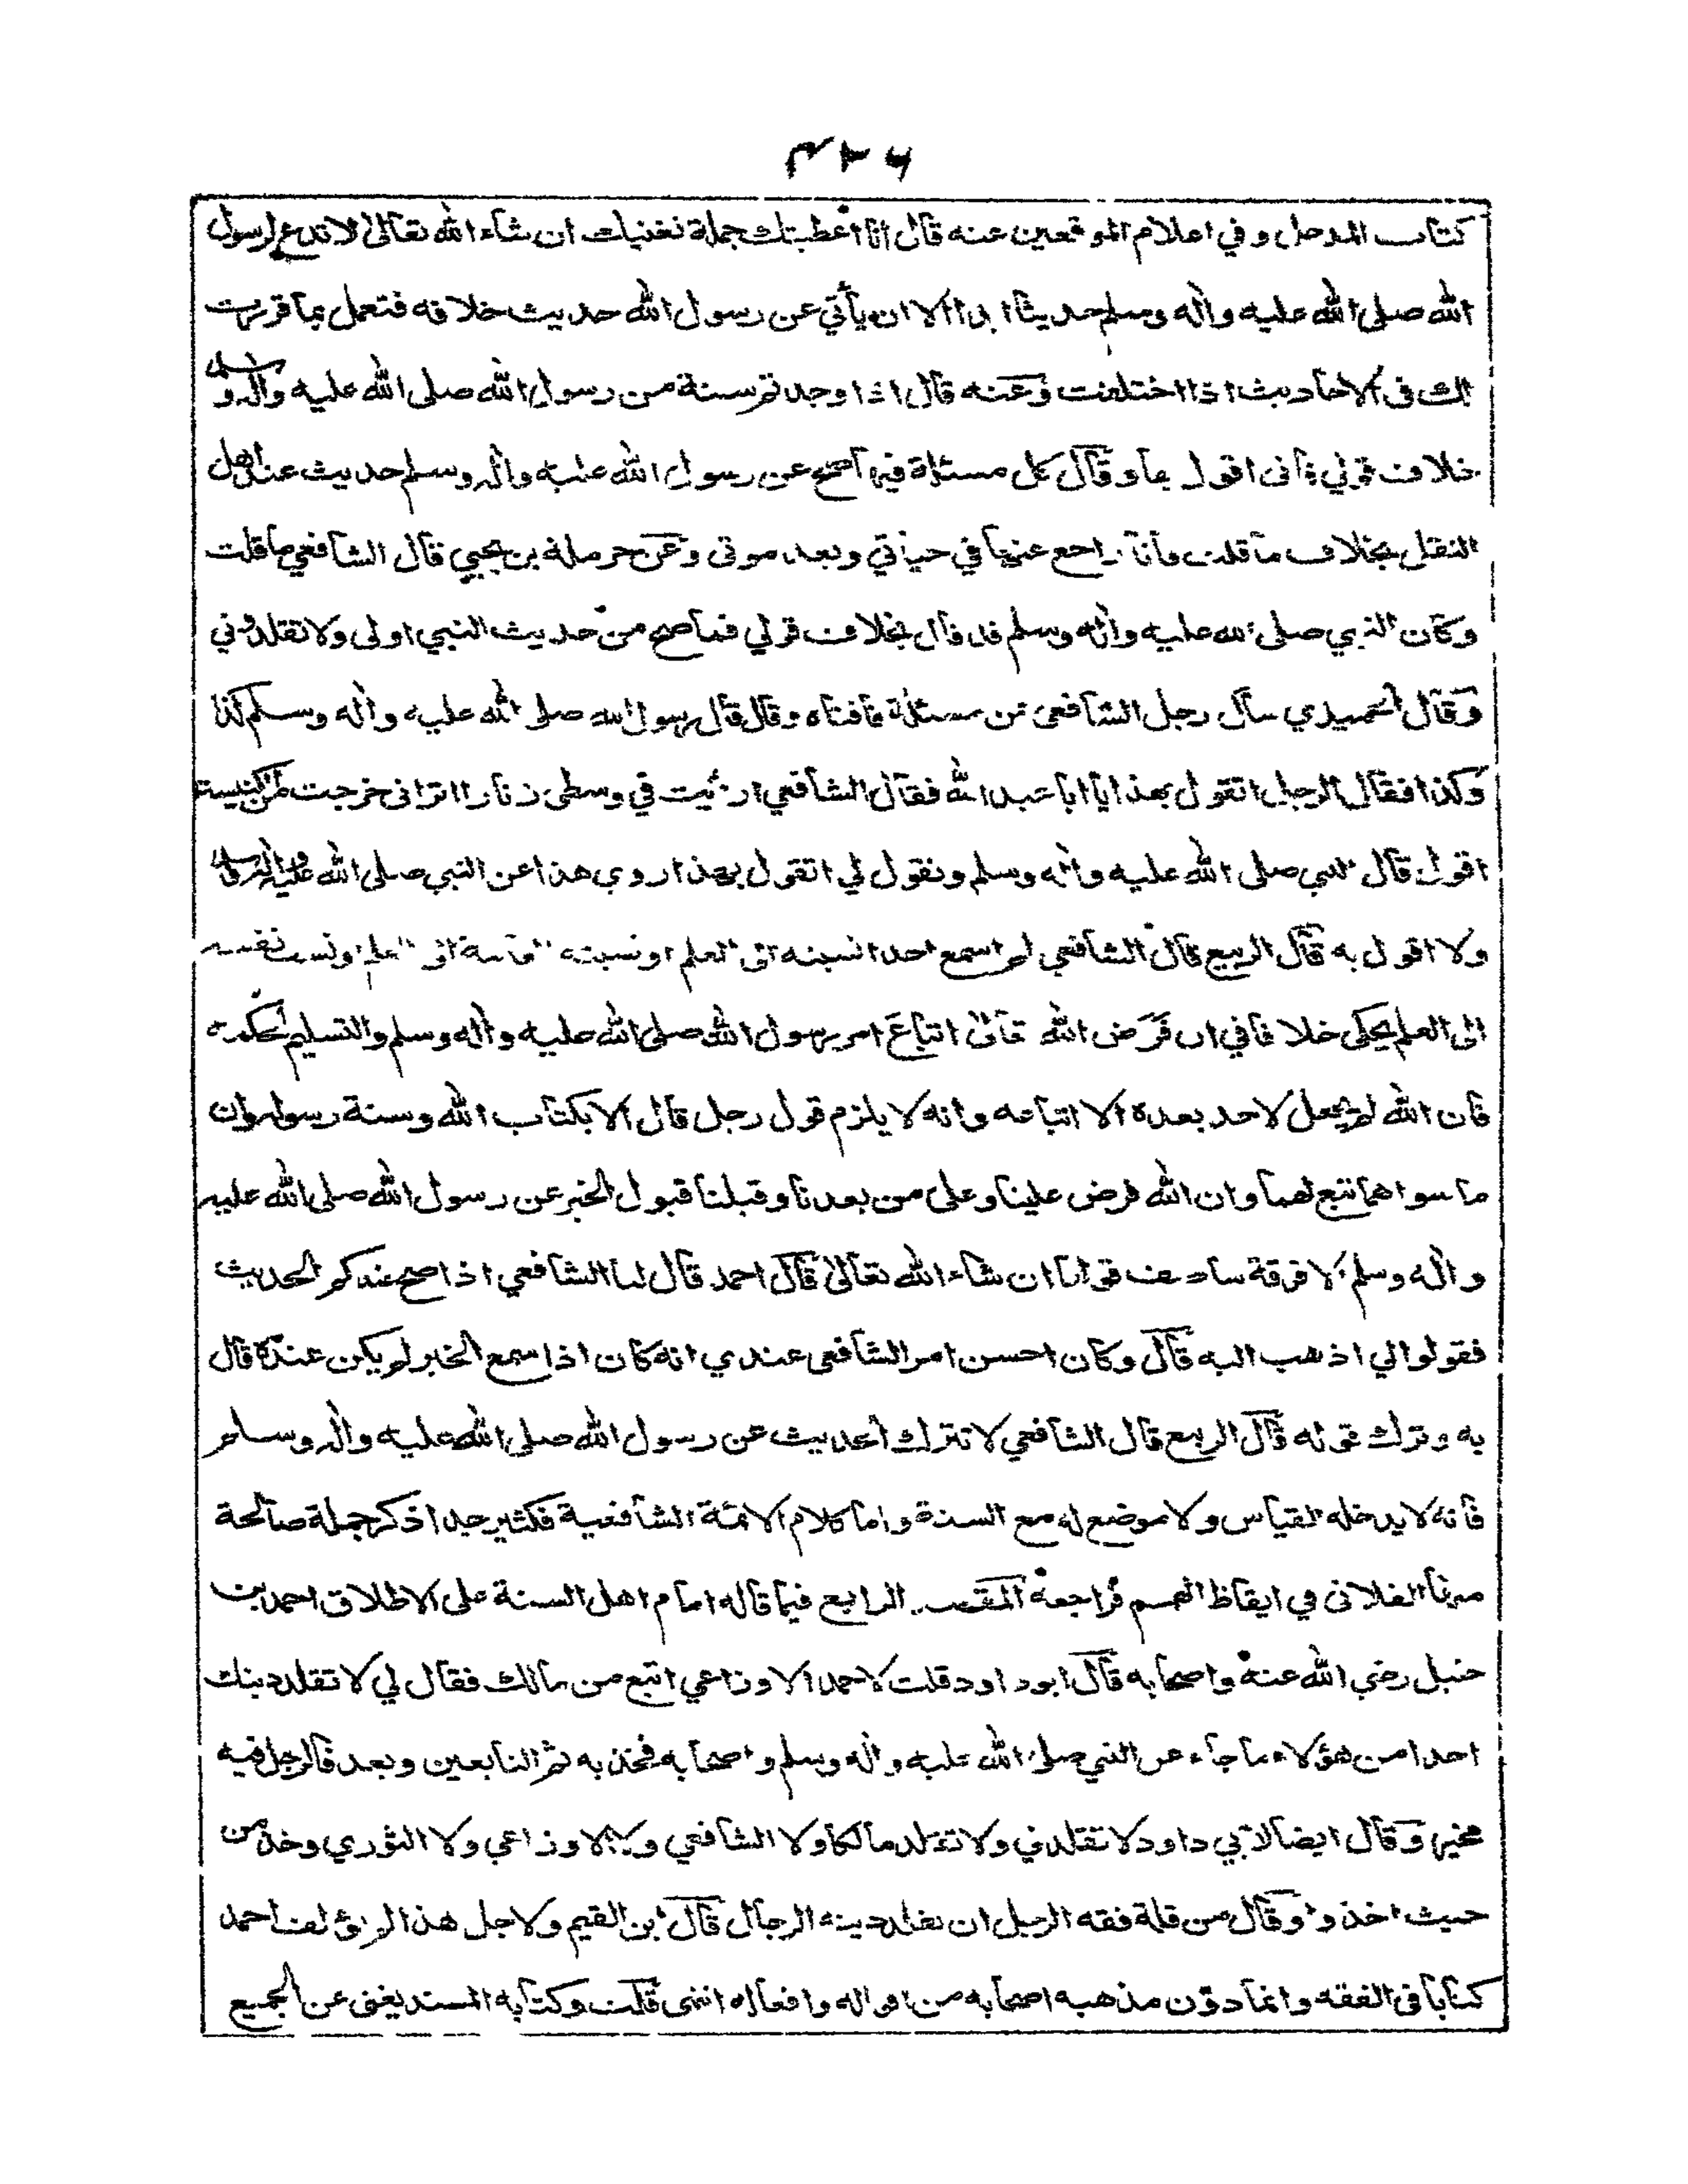 ٣٢٦
كتاب المدخل وفي اعلام الموقعين عنه قال انا اعطيتك جملة تغنيك ان شاء الله تعالى لا تدع لرسول
الله صلى الله عليه واله وسلم حديثا ابدا الا ان يأتي عن رسول الله حديث خلافه فتعمل بما قررت
لك في الاحاديث اذا اختلفت وعنه قال اذا وجدتم سنة من رسول الله صلى الله عليه واله وسلم
خلاف قولي فاني اقول بها وقال كل مسئلة فيها صح عن رسول الله عليه واله وسلم حديث عند اهل
النقل بخلاف ما قلت فانا راجع عنها في حياتي وبعد موتي وعن حرملة بن يحيى قال الشافعي ما قلت
وكان النبي صلى الله عليه واله وسلم قد قال بخلاف قولي فما صح من حديث النبي اولى ولا تقلدوني
وقال الحميدي سأل رجل الشافعي عن مسئلة فافتاه وقال قال رسول الله صلى الله عليه واله وسلم كذا
وكذا فقال الرجل اتقول بهذا يا ابا عبد الله فقال الشافعي ارئيت في وسطي زنارا اتراني خرجت من كنيسة
اقول قال النبي صلى الله عليه واله وسلم وتقول لي اتقول بهذا اروي هذا عن النبي صلى الله عليه واله وسلم
ولا اقول به قال الربيع قال الشافعي لم اسمع احدا نسبته الى العلم او نسبته العامة الى العلم او نسب نفسه
الى العلم يحكي خلافا في ان فرض الله تعالى اتباع امر رسول الله صلى الله عليه واله وسلم والتسليم لحكمه
فان الله لم يجعل لاحد بعده الا اتباعه وانه لا يلزم قول رجل قال الا بكتاب الله وسنة رسوله وان
ما سواهما تبع لهما وان الله فرض علينا وعلى من بعدنا وقبلنا قبول الخبر عن رسول الله صلى الله عليه
واله وسلم الا فرقة سأصف قولها ان شاء الله تعالى قال احمد قال لنا الشافعي اذا صح عندكم الحديث
فقولوا لي اذهب اليه قال وكان احسن امر الشافعي عندي انه كان اذا سمع الخبر لم يكن عنده قال
به وترك قوله قال الربيع قال الشافعي لا تترك الحديث عن رسول الله صلى الله عليه واله وسلم
فانه لا يدخله القياس ولا موضع له مع السنة واما كلام الائمة الشافعية فكثير جدا ذكر جملة صالحة
منها الفلاني في ايقاظ الهمم فراجعه المقصد الرابع فيما قاله امام اهل السنة على الاطلاق احمد بن
حنبل رضي الله عنه واصحابه قال ابو داود قلت لاحمد الاوزاعي اتبع من مالك فقال لي لا تقلد دينك
احدا من هؤلاء ما جاء عن النبي صلى الله عليه واله وسلم واصحابه فخذ به ثم التابعين وبعد فالرجل فيه
مخير وقال ايضا لابي داود لا تقلدني ولا تقلد مالكا ولا الشافعي ولا الاوزاعي ولا الثوري وخذ من
حيث اخذوا وقال من قلة فقه الرجل ان يقلد دينه الرجال قال ابن القيم ولاجل هذا لم يؤلف احمد
كتابا في الفقه وانما دون مذهبه اصحابه من اقواله وافعاله انتهى قلت وكتابه المسند يغني عن الجميع